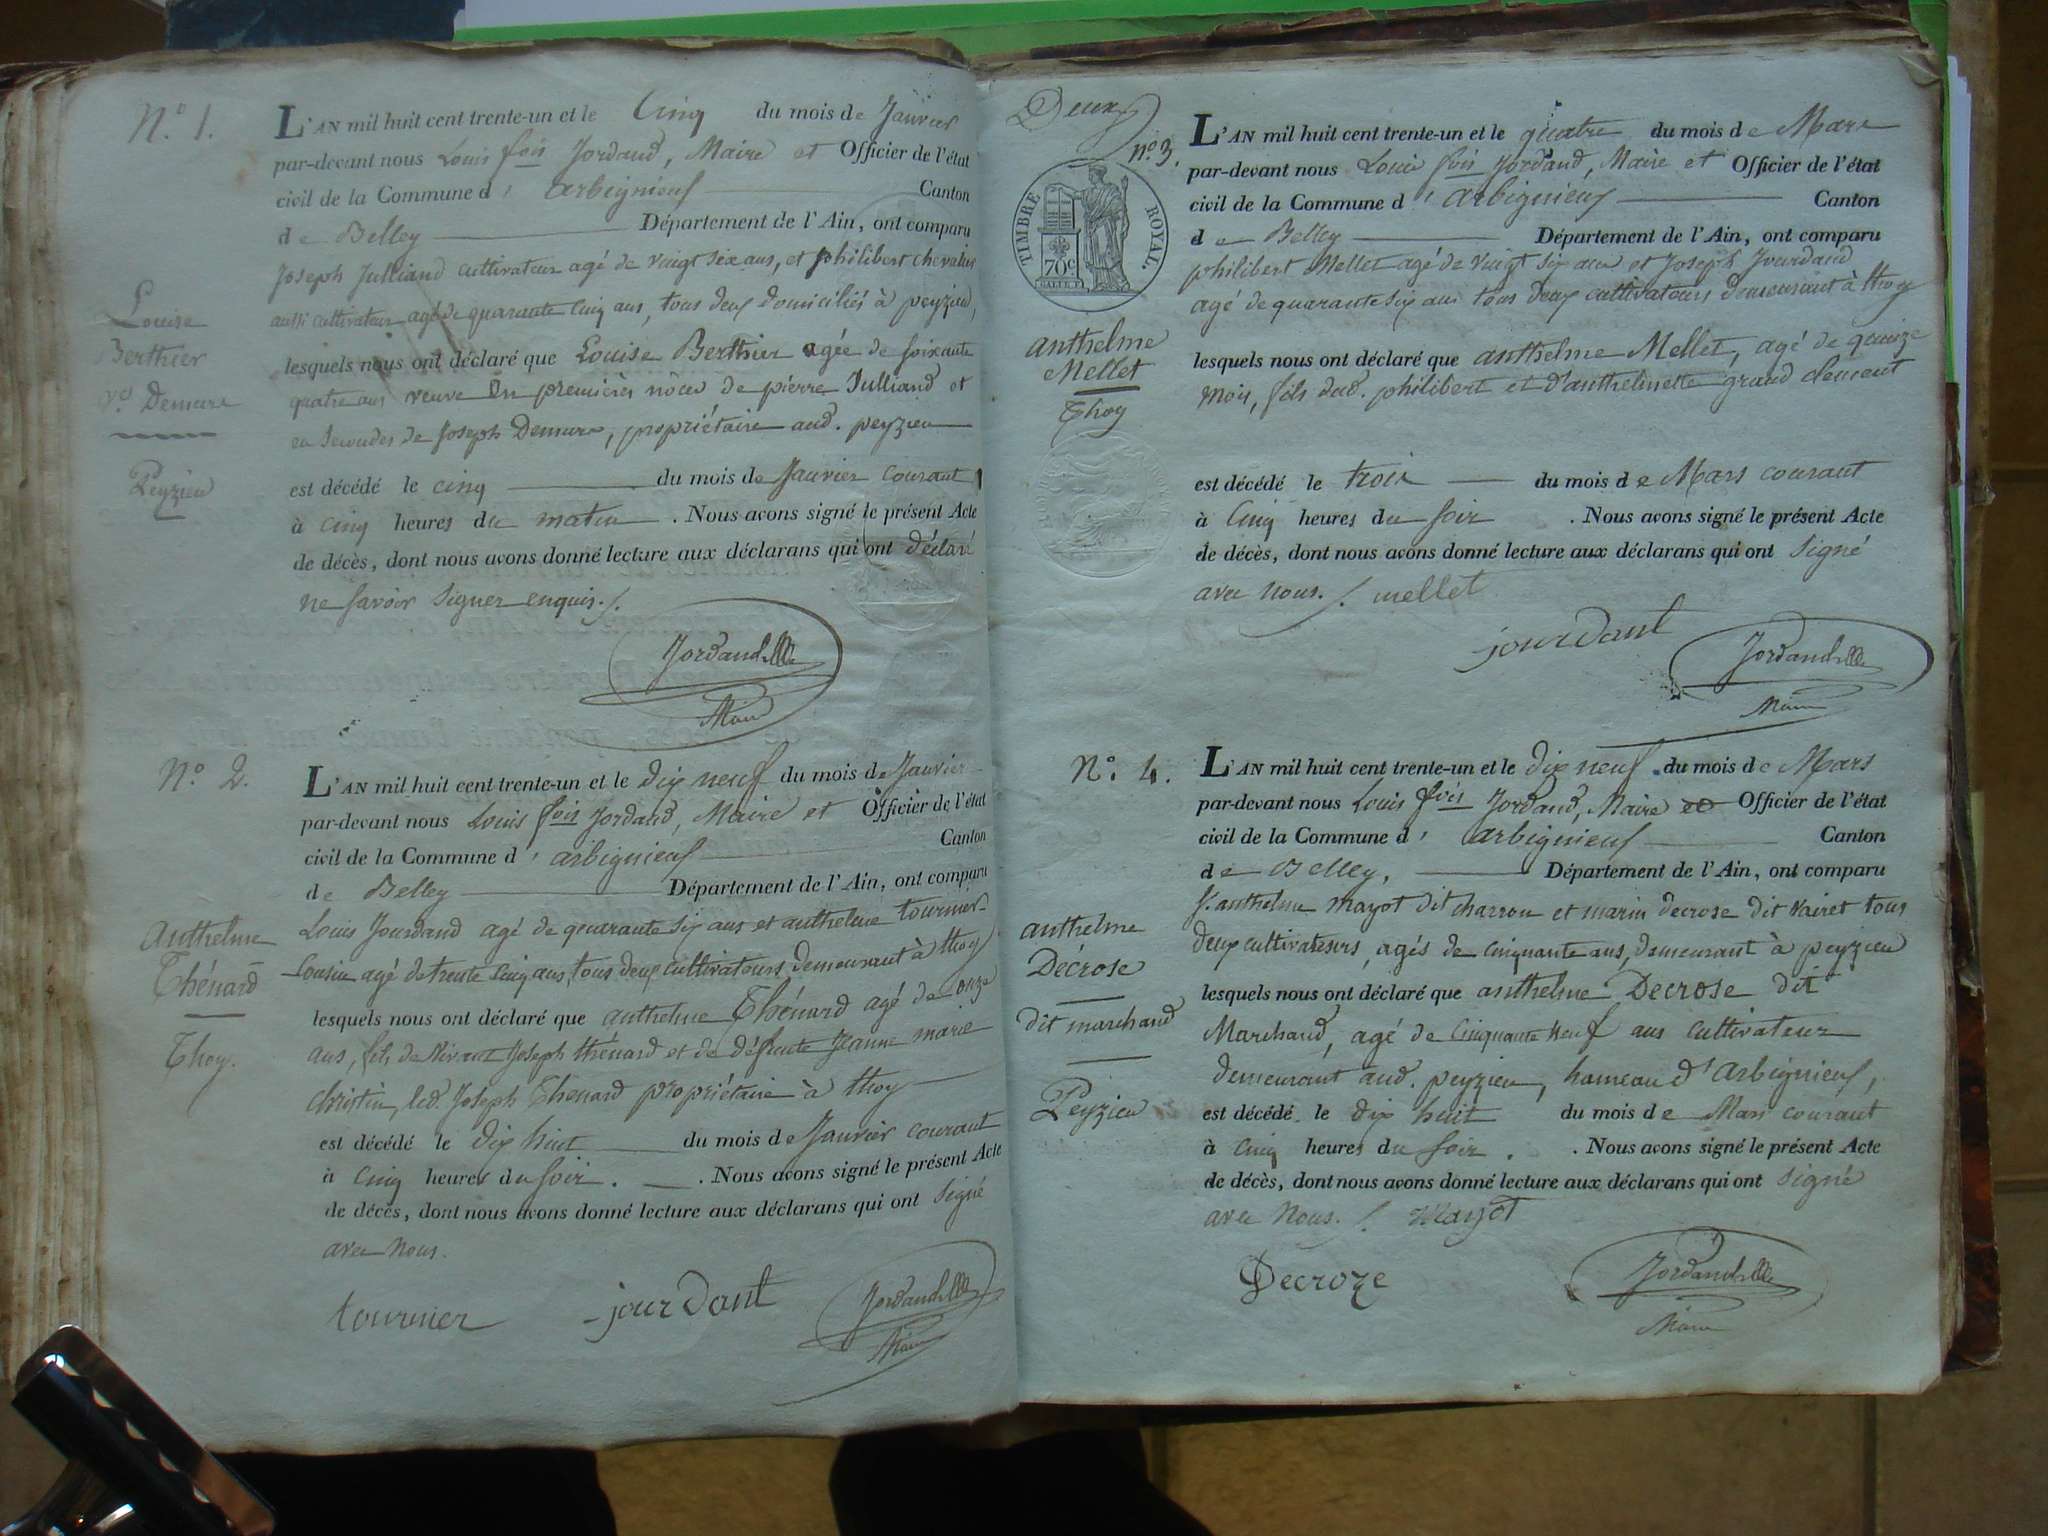 N.º 1.
L'AN mil huit cent trente-un et le Cinq du mois de Janvier
par-devant nous Louis fois Jordand, Maire et Officier de l'état
civil de la Commune d' arbignieuf Canton
de Belley Département de l'Ain, ont comparu
Joseph Julliand cultivateur agé de vaigt six ans, et philibert chevalier
aussi cultivateur agé de quarante cinq ans, tous deux domiciliés à peyzieu,
lesquels nous ont déclaré que Louise Berthier agée de soixante
quatre ans veuve En premières nôces de pierre Julliand et
en secondes de Joseph Demure, propriétaire aud. peyzieu
est décédé le cinq du mois de Janvier courant
à cinq heures du matin . Nous avons signé le présent Acte
de décès, dont nous avons donné lecture aux déclarans qui ont déclaré
ne savoir signer enquis./.
Jordand
Maire
Louise
Berthier
vᵉ Demure
Peyzieu
N.º 2.
L'AN mil huit cent trente-un et le dix neuf du mois de Janvier
par-devant nous Louis fois Jordand, Maire et Officier de l'état
civil de la Commune d' arbignieuf Canton
de Belley Département de l'Ain, ont comparu
Louis Jourdand agé de quarante six ans et anthelme tournier
Cousin agé de trente cinq ans, tous deux cultivateurs demeurant à thoy
lesquels nous ont déclaré que anthelme Thénard agé de onze
ans, fils de vivant Joseph thénard et de défunte Jeanne marie
christin, led. Joseph Thenard propriétaire à thoy
est décédé le dix huit du mois de Janvier courant
à cinq heures du soir. . Nous avons signé le présent Acte
de décès, dont nous avons donné lecture aux déclarans qui ont signé
avec nous.
tournier jourdant Jordand
Maire
Anthelme
Thénard
Thoy.
Deux
nº 3.
TIMBRE ROYAL.
70 c
L'AN mil huit cent trente-un et le quatre du mois de Mars
par-devant nous Louis fois Jordand, Maire et Officier de l'état
civil de la Commune d' arbignieuf Canton
de Belley Département de l'Ain, ont comparu
philibert Mellet agé de vaigt six ans et Joseph Jourdand
agé de quarante six ans tous deux cultivateurs demeurant à thoy
lesquels nous ont déclaré que anthelme Mellet, agé de quinze
mois, fils dud. philibert et d'anthelmette grand clement
est décédé le trois du mois de Mars courant
à Cinq heures du soir . Nous avons signé le présent Acte
de décès, dont nous avons donné lecture aux déclarans qui ont signé
avec nous. /. mellet
jourdant Jordand
Maire
anthelme
Mellet
Thoy
Nº. 4.
L'AN mil huit cent trente-un et le dix neuf du mois de Mars
par-devant nous Louis fois Jordand, Maire et Officier de l'état
civil de la Commune d' arbignieuf Canton
de Belley, Département de l'Ain, ont comparu
Sʳ anthelme mayot dit charron et marin decrose dit vairet tous
deux cultivateurs, agés de cinquante ans, demeurant à peyzieu
lesquels nous ont déclaré que anthelme Decrose dit
Marchand, agé de Cinquante neuf ans cultivateur
demeurant aud. peyzieu, hameau d'Arbignieuf,
est décédé le dix huit du mois de Mars courant
à cinq heures du soir. . Nous avons signé le présent Acte
de décès, dont nous avons donné lecture aux déclarans qui ont signé
avec nous. /. mayot
Decroze Jordand
Maire
anthelme
Décrose
dit marchand
Peyzieu